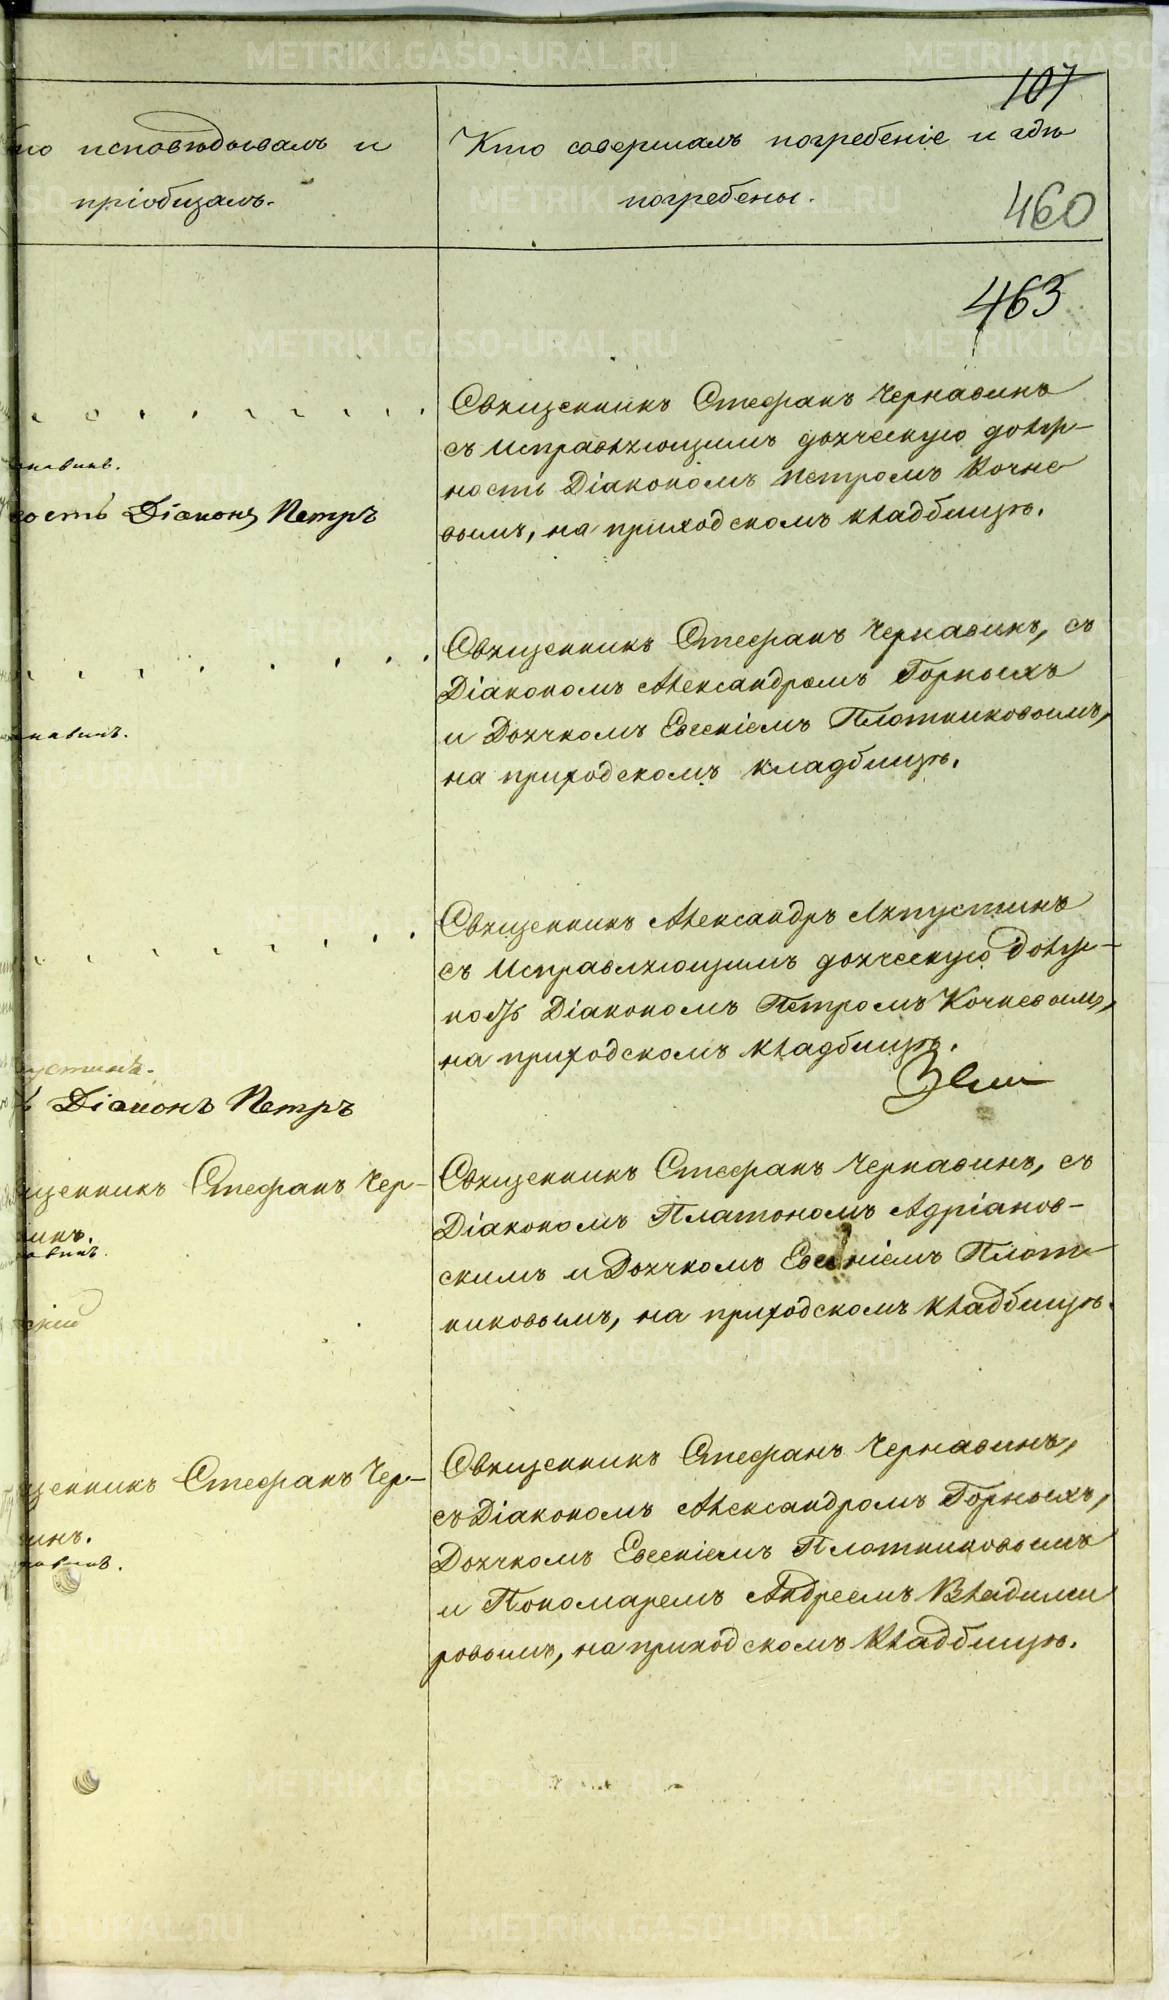 107
то исповѣдывалъ и
пріобщалъ.
Кто совершалъ погребеніе и гдѣ
погребены.
460
463
Священникъ Стефанъ Чернавинъ
съ исправляющимъ дьяческую долж-
ность Діакономъ Петромъ Кочне
вымъ, на приходскомъ кладбищѣ.
ность Діаконъ Петръ
Священникъ Стефанъ Чернавинъ, съ
Діакономъ Александромъ Горныхъ
и Дьячкомъ Евгеніемъ Плотниковымъ,
на приходскомъ кладбищѣ.
навинъ.
Священникъ Александръ Ляпустинъ
съ исправляющимъ дьяческую долж-
ность Діакономъ Петромъ Кочневымъ,
на приходскомъ кладбищѣ.
пустинъ.
ь Діаконъ Петръ
щенникъ Стефанъ Чер-
винъ.
навинъ.
скій
Священникъ Стефанъ Чернавинъ, съ
Діакономъ Платономъ Адріанов-
скимъ и Дьячкомъ Евгеніемъ Плот-
никовымъ, на приходскомъ кладбищѣ.
щенникъ Стефанъ Чер-
винъ.
навинъ.
Священникъ Стефанъ Чернавинъ,
съ Діакономъ Александромъ Горныхъ,
Дьячкомъ Евгеніемъ Плотниковымъ
и Пономаремъ Андреемъ Владими
ровымъ, на приходскомъ кладбищѣ.
METRIKI.GASO-URAL.RU